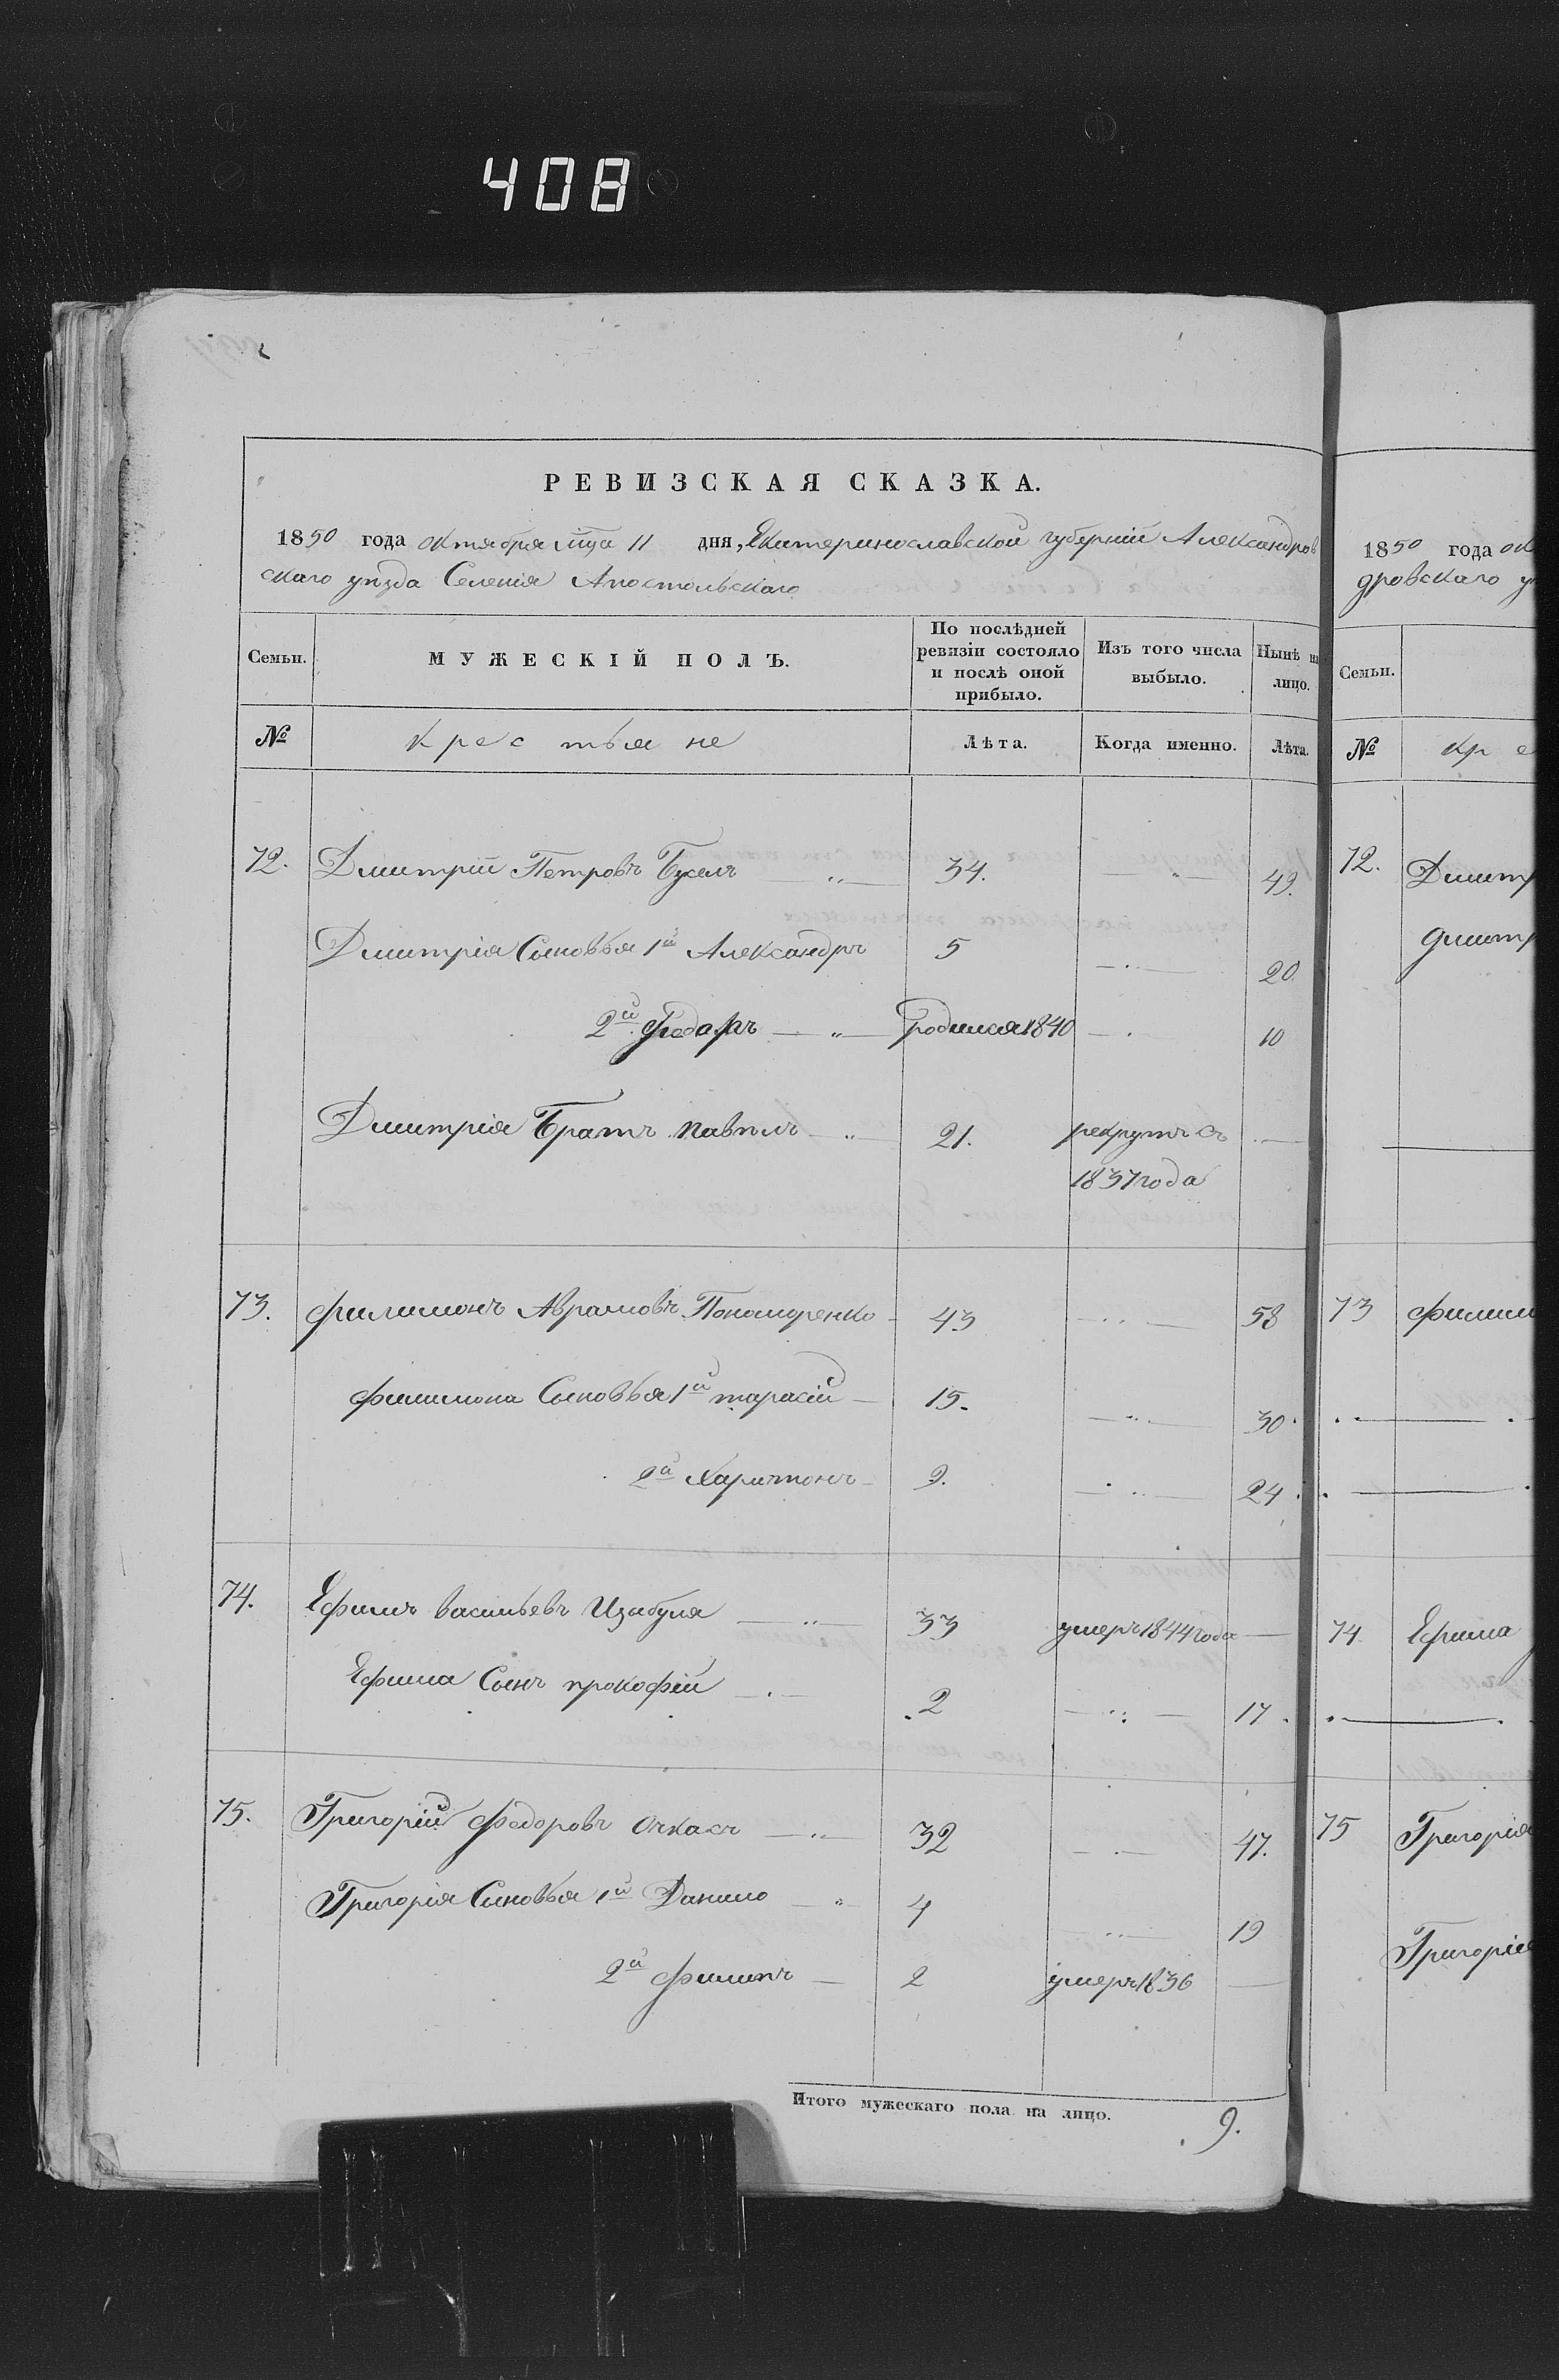 408
РЕВИЗСКАЯ СКАЗКА.
1850 года октября мца 11 дня, Екатеринославской губерніи Александров
скаго уѣзда Селенія Апостольскаго
Семьи. МУЖЕСКІЙ ПОЛЪ. По послѣдней ревизіи состояло и послѣ оной прибыло. Изъ того числа выбыло. Нынѣ на лицо.
№ крестьяне Лѣта. Когда именно. Лѣта.
72. Дмитрій Петровъ Бусель 34. 49.
Дмитрія Сыновья 1й Александръ 5 20.
2й Федоръ родился 1840 10
Дмитрія Братъ Павелъ 21. рекрутъ съ
1837 года
73. Филимонъ Аврамовъ Пономаренко 43 58
Филимона Сыновья 1й тарасій 15. 30
2й Харитонъ 9. 24
74. Ефимъ васильевъ Цыбуля 33 умеръ 1844 года
Ефима Сынъ прокофій 2 17
75. Григорій Федоровъ Очкасъ 32 47.
Григорія Сыновья 1й Данило 4 19
2й Филипъ 2 умеръ 1836
Итого мужескаго пола на лицо. 9.
1850 года ок
дровскаго у
Семьи.
№ кре
72. Дмитр
Дмитр
73 Филим
74 Ефима
75 Григорія
Григорія